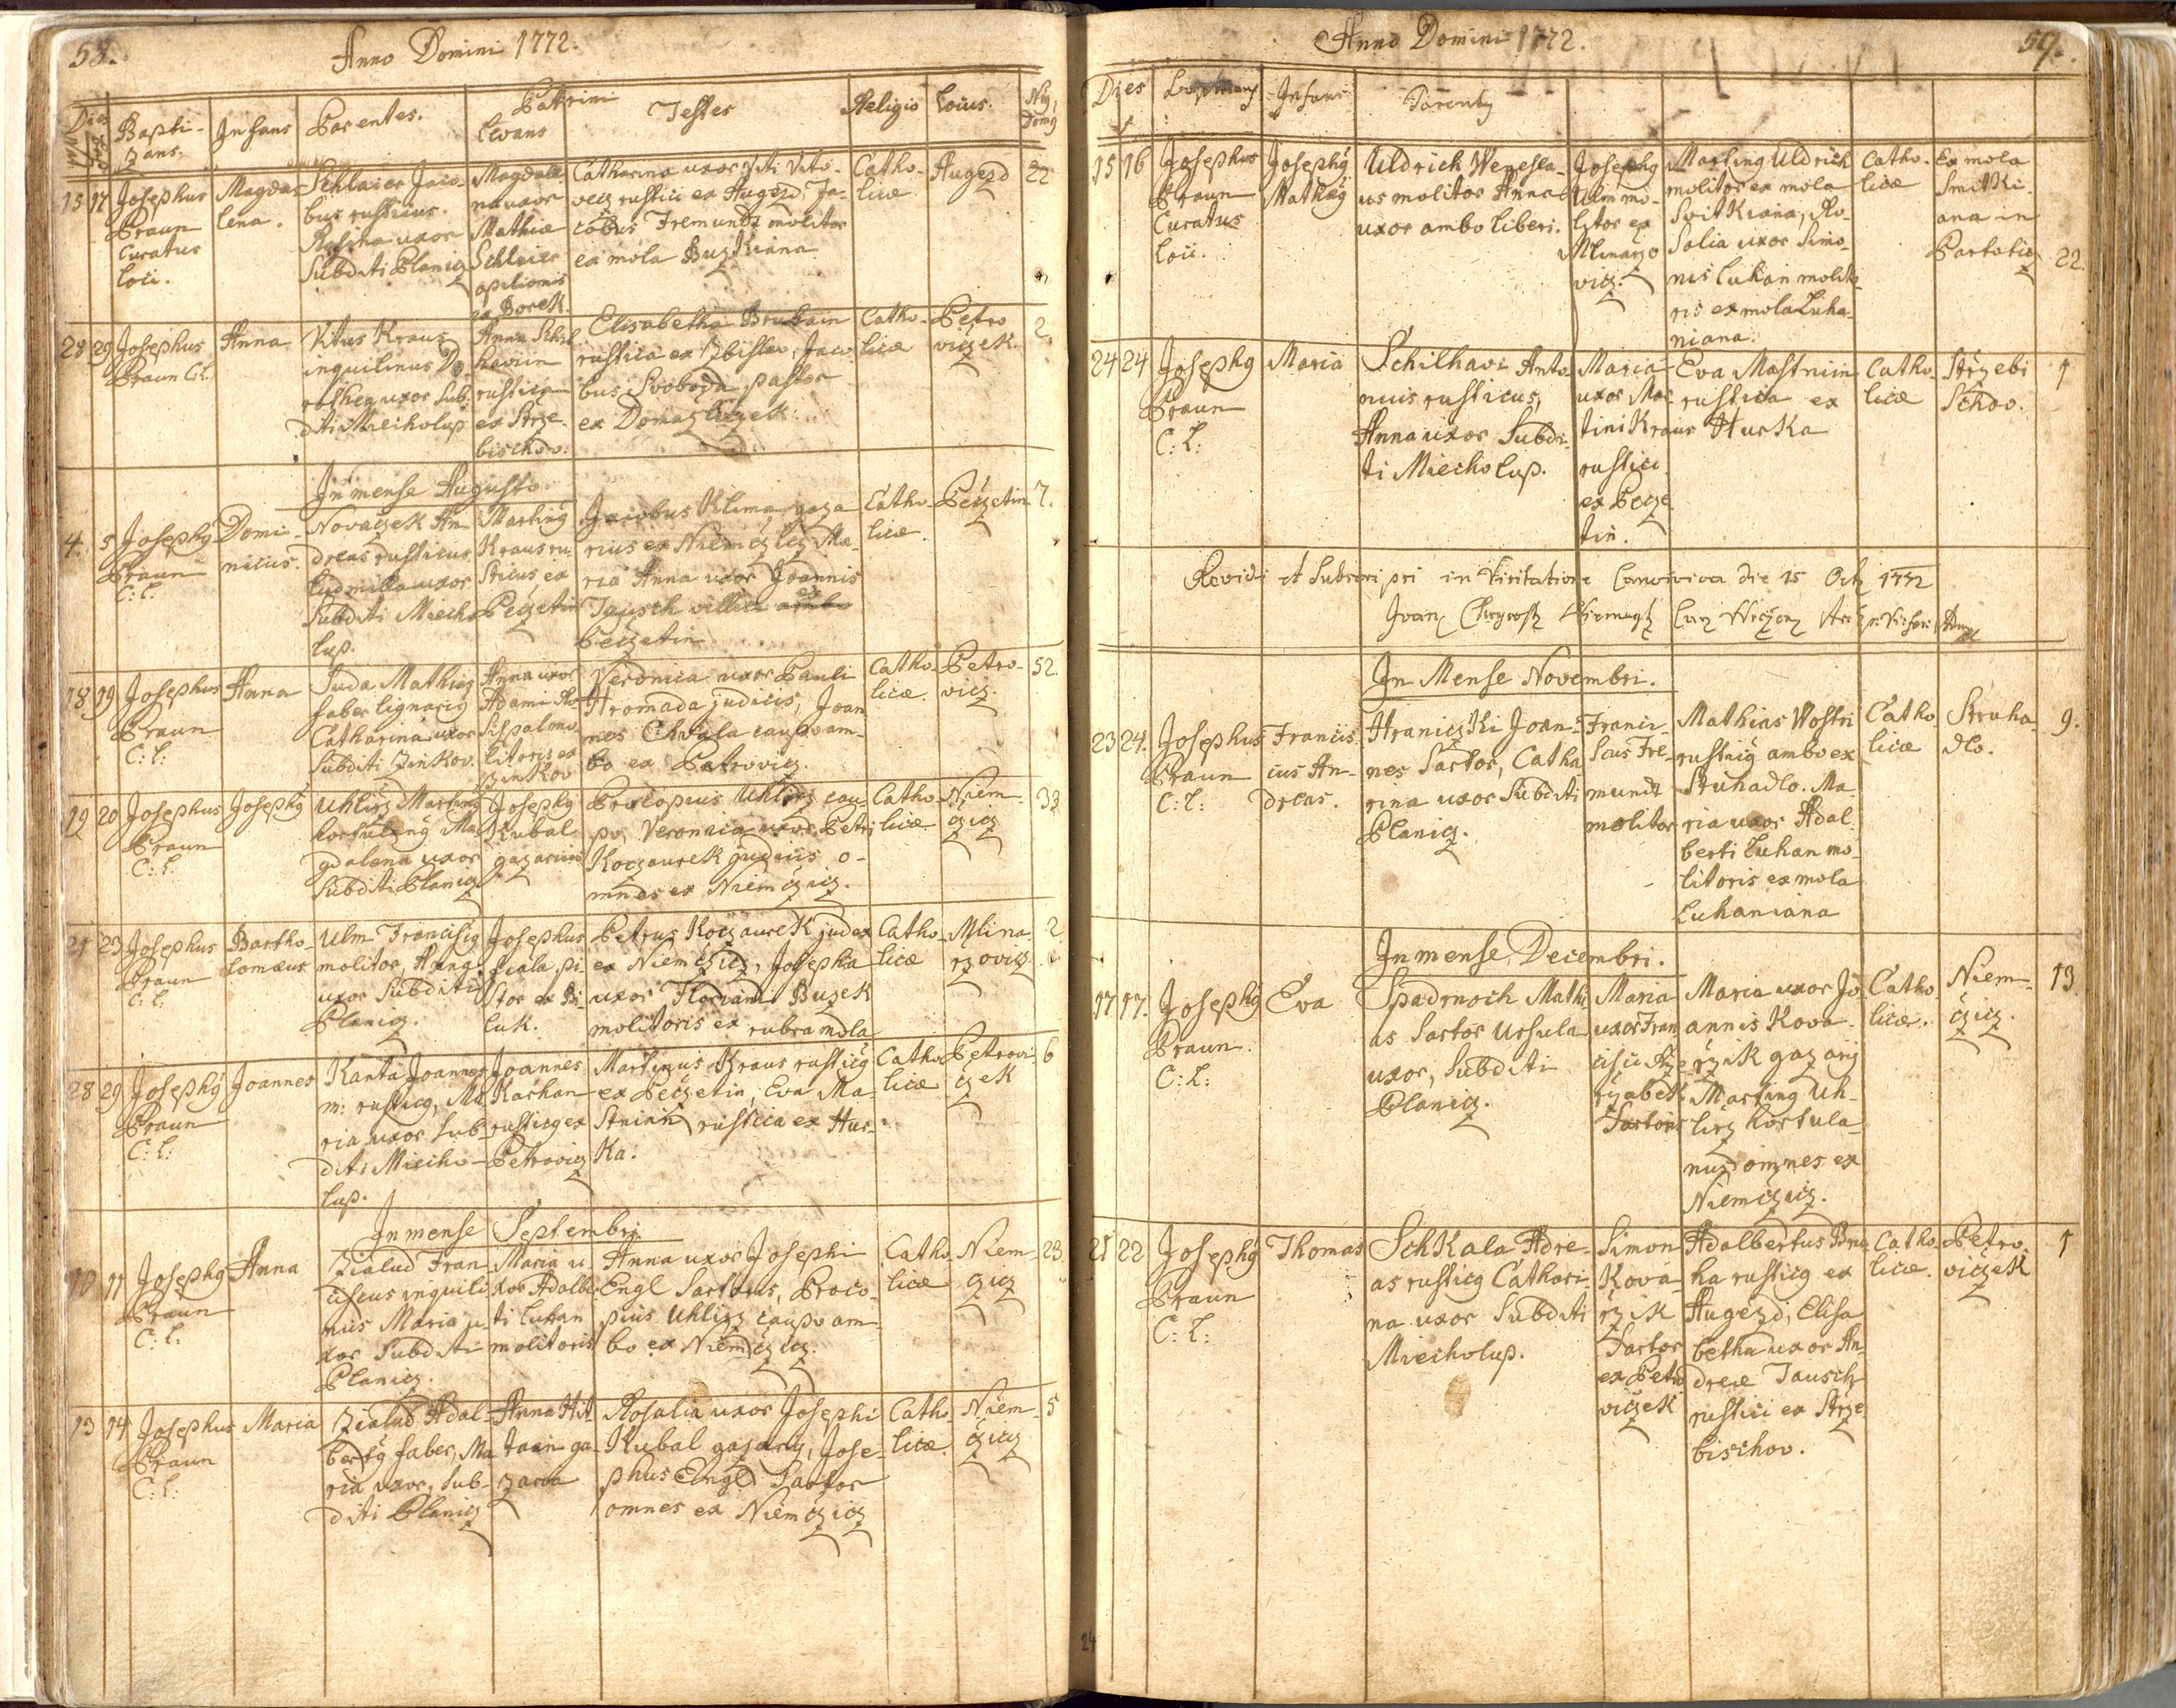 58.
Anno Domini 1772.
Dies
Bapti-
zans.
Infans
Parentes.
Patrini
Levans
Testes
Religio
Locus.
Domus
15 17
Josephus
Braun
Curatus
loci.
Magda-
lena.
Schlaier Jaco-
bus rusticus.
Rosina uxor
Subditi Planicz
Magdale-
na uxor
Mathiæ
Schlaier
opilionis
ex Borek.
Catharina uxor Viti Vito-
vecz rustici ex Augezd, Ja-
cobus Fremundt molitor
ex mola Buzkiana
Catho-
licæ
Augezd
22
28 29
Josephus
Braun C:L:
Anna
Vitus Kraus
inquilinus Do-
rothea uxor Sub-
diti Miecholup
rustica
ex Strze-
bischov.
Elisabetha
rustica ex Zbislav, Jaco-
bus Svoboda pastor
ex Domazliczek.
Catho-
licæ
Petro
viczek
2.
In mense Augusto.
4. 5
Josephg
Braun
C:L:
Domi-
nicus.
Novaczek An-
dreas rusticus
Ludmilla uxor
Subditi Miecho-
lup.
Marting
Kraus ru-
sticus ex
Peczetin
Jacobus Klima gaza
rius ex Niemczicz, Ma-
ria Anna uxor Joannis
Tausch villici ex
Peczetin
Catho-
licæ.
Peczetin
7.
18 19
Josephus
Braun
C:L:
Anna
Juda Mathias
faber lignarig
Catharina uxor
Subditi Zinkov.
Anna uxor
Adami Ro-
sispal mo-
litoris ex
Zinkov
Veronica uxor Pauli
Hromada judicis, Joan
nes Chvala caupo am-
bo ex Petrovicz.
Catho-
licæ.
Petro-
vicz.
52.
19 20
Josephus
Braun
C:L:
Josephg
Uhlirz Marting
hortulang Ma-
gdalena uxor
Subditi Planicz
Josephg
Kubal
gazarius
Procopius Uhlirz cau-
po, Veronica uxor Petri
Koczaurek judicis o-
mnes ex Niemczicz.
Catho-
licæ.
Niem-
czicz
33
21 23
Josephus
Braun
C:L:
Bartho-
lomæus
Ulm Franciscg
molitor, Anna
uxor Subditi
Planicz.
Josephus
fiala pi-
stor ex Bi-
luk.
Petrus Koczaurek judex
ex Niemczicz, Josepha
uxor Floriani Buzek
molitoris ex rubra mola
Catho-
licæ
Mlina-
rzovicz
2.
28 29
Josephg
Braun
C:L:
Joannes
Kanta Joannes
m: rusticg, Ma
ria uxor Sub-
diti Miecho-
lup.
Joannes
Kachan
rusticg ex
Petrovicz
Martinus Kraus rusticg
ex Peczetin, Eva Ma-
stnin rustica ex Hur-
ka.
Catho-
licæ
Petrovi-
czek
6
In mense Septembri.
10 11
Josephg
Braun
C:L:
Anna
Zialud Fran-
ciscus inquili
nus Maria u-
xor Subditi
Planicz.
Maria u-
xor Adalber
ti Luhan
molitoris
Anna uxor Josephi
Engl Sartoris, Proco-
pius Uhlirz caupo am-
bo ex Niemczicz.
Catho-
licæ
Niem-
czicz
23
13 14
Josephus
Braun
C:L:
Maria
Zialud Adal-
bertg faber, Ma
ria uxor, Sub-
diti Planicz
Anna
ga-
zaria
Rosalia uxor Josephi
Kubal gazarii, Jose-
phus Engl Sartor
omnes ex Niemczicz
Catho-
licæ.
Niem-
czicz
5
Anno Domini 1772.
59.
Dies
Infans
Parentes
15 16
Josephus
Braun
Curatus
loci.
Josephg
Matheg
Uldrich Wencesla-
us molitor Anna
uxor ambo liberi.
Josephg
Ulm mo-
litor ex
Mlinarzo
vicz.
Marting Uldrich
molitor ex mola
Svitkiana, Ro-
salia uxor Simo-
nis Luhan molito-
ris ex mola Luha-
niana.
Catho-
licæ
Ex mola
Svitki-
ana in
22.
24 24
Josephg
Braun
C:L:
Maria
Schilhavi Anto-
nius rusticus,
Anna uxor Subdi-
ti Miecholup.
Maria
uxor Mar-
tini Kraus
rustici
ex Pecze
tin.
Eva Mastnin
rustica ex
Hurka
Catho-
licæ
Strzebi
schov.
1
Revidi et Subscripsi in Visitatione Canonica die 15 1772
In Mense Novembri.
23 24.
Josephus
Braun
C:L:
Francis-
cus An-
dreas.
Hraniczki Joan-
nes Sartor, Catha
rina uxor Subditi
Planicz.
Franci-
scus Fre-
mundt
molitor
Mathias Wostri
rusticg ambo ex
Struhadlo. Ma-
ria uxor Adal-
berti Luhan mo-
litoris ex mola
Luhaniana
Catho-
licæ
Struha-
dlo.
9.
In mense Decembri.
17 17.
Josephg
Braun.
C:L:
Eva
Spadrnoch Mathi-
as Sartor Ursula
uxor, Subditi
Planicz.
Maria
uxor Fran
cisci Rze
rzabek
Sartoris
Maria uxor Jo-
annis Kova-
rzik gazarii
Marting Uh-
lirz hortula-
nus omnes ex
Niemczicz.
Catho-
licæ.
Niem-
czicz.
13.
21 22
Josephg
Braun
C:L:
Thomas
Schkala Adre-
as rusticg Cathari-
na uxor Subditi
Miecholup.
Simon
Kova-
rzik
Sartor
ex Petro
viczek
Adalbertus
rusticg ex
Augezd, Elisa
betha uxor An-
dreæ Tausch
rustici ex Strze-
bischov.
Catho-
licæ.
Petro-
viczek
1
24